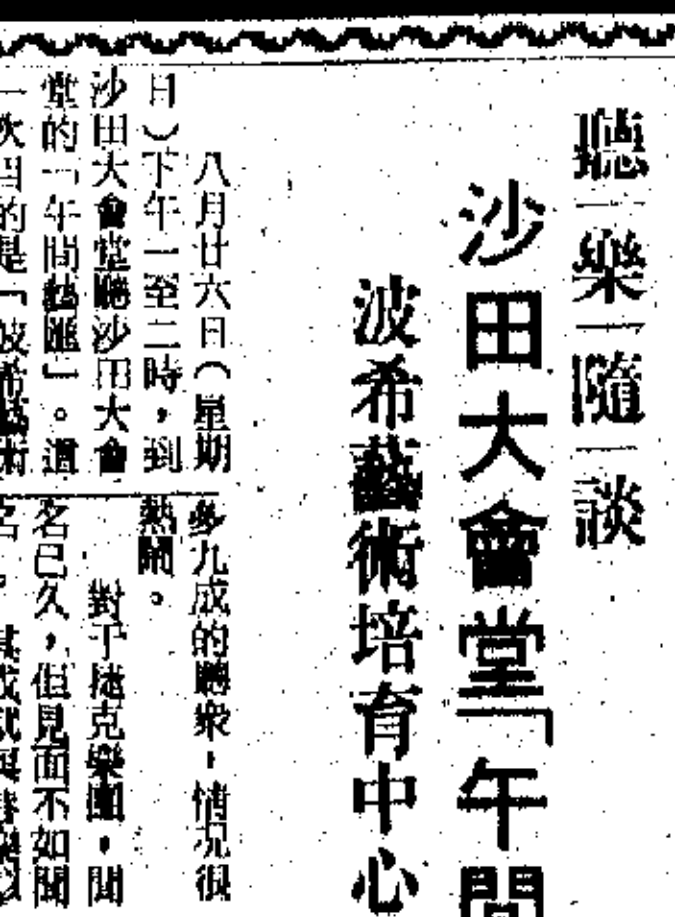 聽樂隨談
沙田大會堂「午間
波希藝術培育中心
八月廿六日（星期
日）下午一至二時，到
沙田大會堂聽沙田大會
堂的「午間藝匯」。這
一次目的是「波希藝術
多九成的聽衆，情況很
熱鬧。
對于捷克樂團，聞
名已久，但見面不如聞
名，其